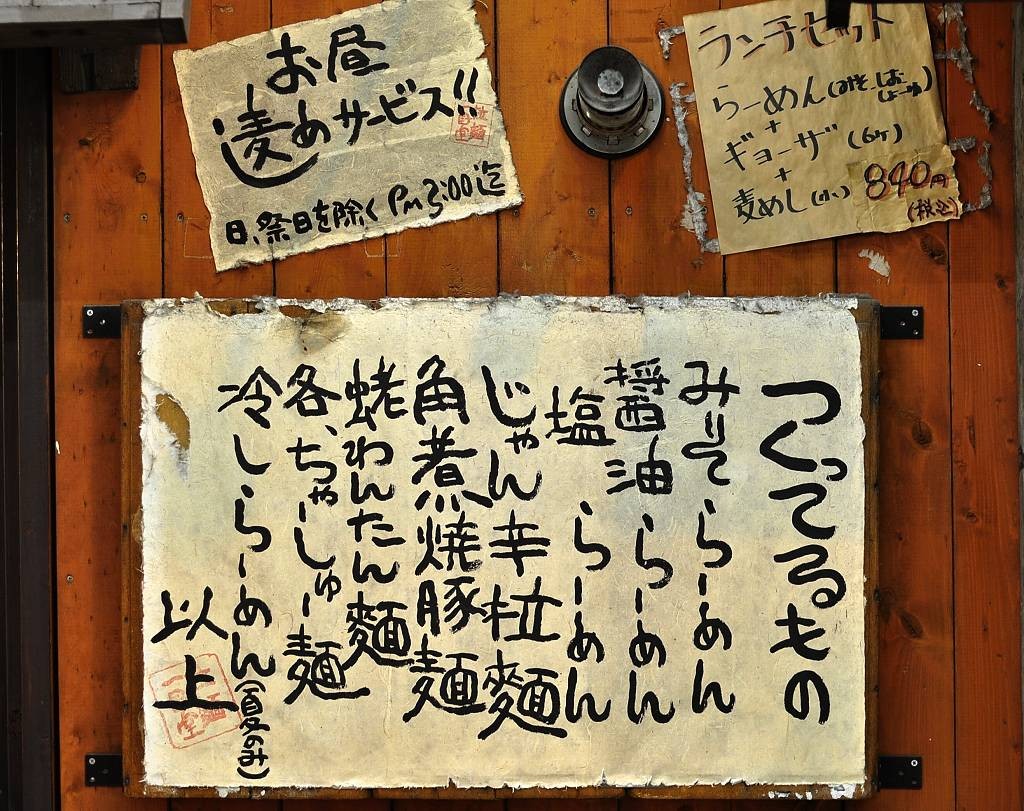 お昼
麦めサービス!!
日、祭日を除く PM3:00迄
ランチセット
らーめん(みそ、しお、しょーゆ)
+
ギョーザ(6ケ)
+
麦めし(小)
840円
(税込)
つくってるもの
みりてらーめん
醤油らーめん
塩らーめん
じゃん辛粒麺
角煮焼豚麺
蛯わんたん麺
各、ちゃーしゅー麺
冷しらーめん(夏のみ)
以上